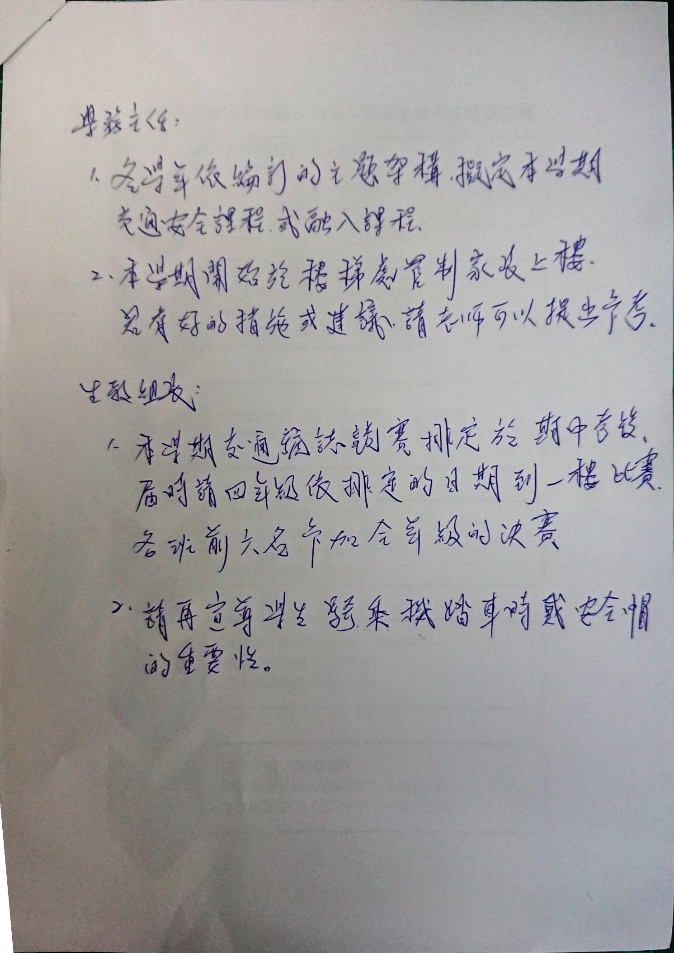 學務主任:
1. 各學年依編訂的主題架構.擬定本學期
交通安全課程.或融入課程.
2. 本學期開始於樓梯處管制家長上樓.
若有好的措施或建議.請老師可以提出參考.
生教組長:
1. 本學期交通號誌競賽排定於期中考後.
屆時請四年級依排定的日期到一樓比賽.
各班前六名參加全年級的決賽
2. 請再宣導學生騎乘機踏車時戴安全帽
的重要性。